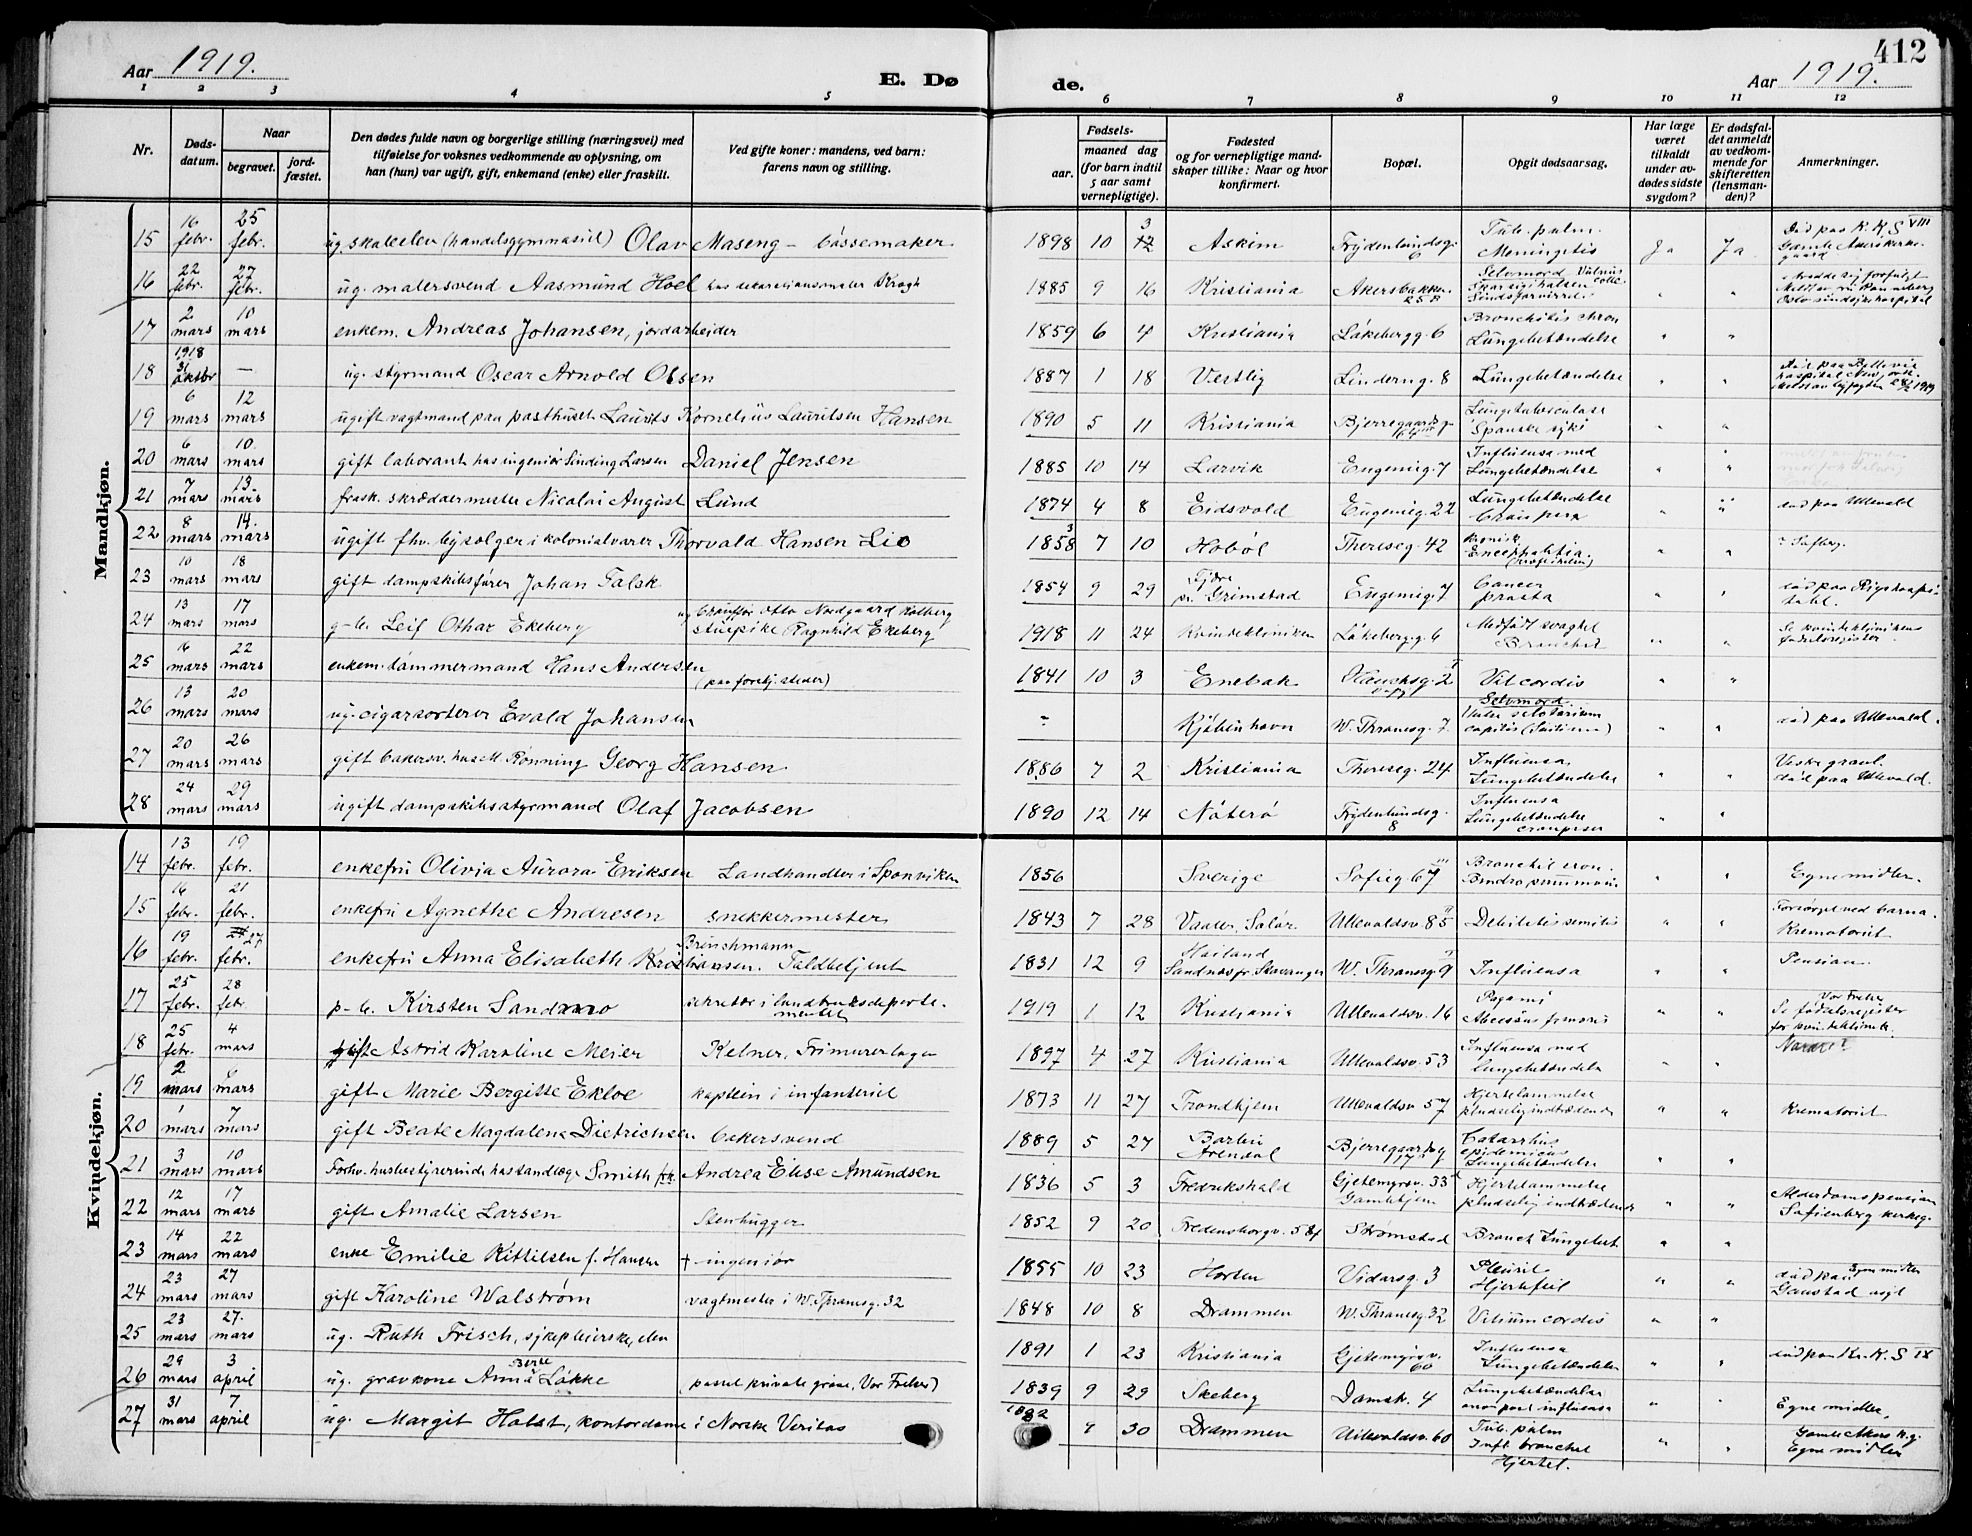 412
Aar 1919. E. Dø de. Aar 1919.
1 2 3 4 5 6 7 8 9 10 11 12
Nr. Døds-datum. Naar begravet. jord-fæstet. Den dødes fulde navn og borgerlige stilling (næringsvei) med tilføielse for voksnes vedkommende av oplysning, om han (hun) var ugift, gift, enkemand (enke) eller fraskilt. Ved gifte koner: mandens, ved barn: farens navn og stilling. Fødsels- aar. maaned dag (for barn indtil 5 aar samt vernepligtige). Fødested og for vernepligtige mandskaper tillike: Naar og hvor konfirmert. Bopæl. Opgit dødsaarsag. Har læge været tilkaldt under avdødes sidste sygdom? Er dødsfaldet anmeldt av vedkommende for skifteretten (lensmanden)? Anmerkninger.
Mandkjøn.
15 16 febr. 25 febr. ug. skoleelev (handelsgymnasiet) Olav Maseng - bøssemaker 1898 10 3 Askim Frydenlundsg. 6 Tub. pulm. Meningitis Ja Ja Død paa K. K. S VIII Gamle Akers kirkegaard
16 22 febr. 27 febr. ug. malersvend Aasmund Hoel hos dekorationsmaler Krogh 1885 9 16 Kristiania Akersbakken Selvmord Vulnus colli Skar sig i halsen Sindsforvirret " "
17 2 mars 10 mars enkem. Andreas Johansen, jordarbeider 1859 6 4 Kristiania Løkebergg. 6 Bronchitis chron Lungebetændelse " "
18 1918 31 oktbr — ug. styrmand Oscar Arnold Olsen 1887 1 18 Vestby Linderng. 8 Lungebetændelse " "
19 6 mars 12 mars ugift vagtmand paa posthuset Laurits Kornelius Lauritsen Hansen 1890 5 11 Kristiania Bjerregaardsg. Lungetuberculose Spanske syke " "
20 6 mars 10. mars gift laborant hos ingeniør Sinding Larsen Daniel Jensen 1885 10 14 Larvik Eugenieg. 7 Influensa med Lungebetændelse " "
21 7 mars 13. mars frask. skræddermester Nicolai August Lund 1874 4 8 Eidsvold Eugenieg. 22 Lungebetændelse " " død paa Ullevald
22 8 mars 14. mars ugift fhv. bysælger i kolonialvarer Thorvald Hansen Lie 1858 7 10 Hobøl Thereseg. 42 kronisk " "
23 10 mars 18 mars gift dampskibsfører Johan Falsk 1854 9 29 Fjære Grimstad Eugenieg. 7 Cancer prosta " " død paa Rigshospitalet.
24 13 mars 17 mars g-b. Leif Othar Ekeberg ug chauffør Otto Nordgaard Kolberg stuepike Ragnhild Ekeberg 1918 11 24 Kvindekliniken Løkebergg. 6 Medfødt svaghet Bronchit " " Se kvindeklinikens fødselsregister.
25 16 mars 22 mars enkem. tømmermand Hans Andersen (paa forskj. steder) 1841 10 3 Enebak Vit cordis " "
26 13 mars 20 mars ug. cigarsorterer Evald Johansen - Kjøbenhavn W. Thranesg. 7. Selvmord. Vulnus sclotarium capitis " " død paa Ullevald.
27 20 mars 26 mars gift bakersv. hos M. Rønning Georg Hansen 1886 7 2 Kristiania Thereseg. 24 Influensa Lungebetændelse " " Vestre gravl. død paa Ullevald.
28 24 mars 29 mars ugift dampskibsstyrmand Olaf Jacobsen 1890 12 14 Nøterø Frydenlundsg. 8 Influensa Lungebetændelse croupøser " "
Kvindekjøn.
14 13 febr. 19 febr. enkefru Olivia Aurora Eriksen Landhandler i Sponviken 1856 Sverige Sofieg. 67 III Bronchit cron. " " Egne midler.
15 16 febr. 21 febr. enkefru Agnethe Andresen snekkermester 1843 7 28 Vaaler, Solør. Ullevaldsv. 85 II Debilitis senilis " " Forsørget ved barna. Krematoriet.
16 19 febr. 27 febr. enkefru Anna Elisabeth Kristiansen. Brinchmann Toldbetjent 1831 12 9 Høiland Sandnes pr. Stavanger W. Thranesg. 9 Influensa " " Pension
17 25 febr. 28 febr. p-b. Kirsten Sandmo sekretær i landbruksdepartementet 1919 1 12 Kristiania Ullevaldsv. 16 " " Vor Frelser Se fødselsregister for kvindeklinik.
18 25 febr. 4 mars gift Astrid Karoline Meier Kelner, Frimurerlogen 1897 4 27 Kristiania Ullevaldsv. 53 Influensa med lungebetændelse " "
19 2 mars mars gift Marie Bergitte Ekloe kaptein i infanteriet 1873 11 27 Trondhjem Ullevaldsv. 57 Hjertelammelse pludselig indtrædende " " Krematoriet
20 1 mars 7 mars gift Beate Magdalene Dietrichsen bakersvend 1889 5 27 Barbu Arendal Bjerregaardsg. Catarrhus epidemicus Lungebetændelse " "
21 3 mars 10 mars Forhv. husbestyrerinde hos tandlæge Smith frk. Andrea Elise Amundsen 1836 5 3 Fredrikshald Gjetemyrsv. 33 Gamlehjem Hjertelammelse pludselig indtrædende " " Alderdomspension Sofienberg kirkeg.
22 12 mars 17 mars gift Amalie Larsen Stenhugger 1852 9 20 Fredensborgv. Strømstad Bronch Lungebet. " "
23 14 mars 22 mars enke Emilie Kittilsen f. Hansen † ingeniør 1855 10 23 Horten Vidarsg. 3 Pleurit Hjertefeil " " Egne midler død paa Gaustad asyl
24 23 mars 27 mars gift Karoline Walstrøm vagtmester i W. Thranesg. 32 1848 10 8 Drammen W. Thranesg. 32 Vitium cordis " "
25 23 mars 27. mars ug. Ruth Frisch, sykepleierske, elev 1891 1 23 Kristiania Gjetemyrsv. 60 Influensa Lungebetændelse " " død paa Kr. K. S IX
26 29 mars 3 april ug. gravkone Anna Berte Løkke (passet private grave, Vor Frelser) 1839 9 29 Skeberg Damsk. 4 Lungebetændelse influensa " " Egne midler,
27 31 mars 7 april ug. Margit Holst, kontordame i Norske Veritas 1882 30 Drammen Ullevaldsv. 60 Tub. pulm Inft. bronchit Hjertef. " " Gamle Akers k.g. Egne midler